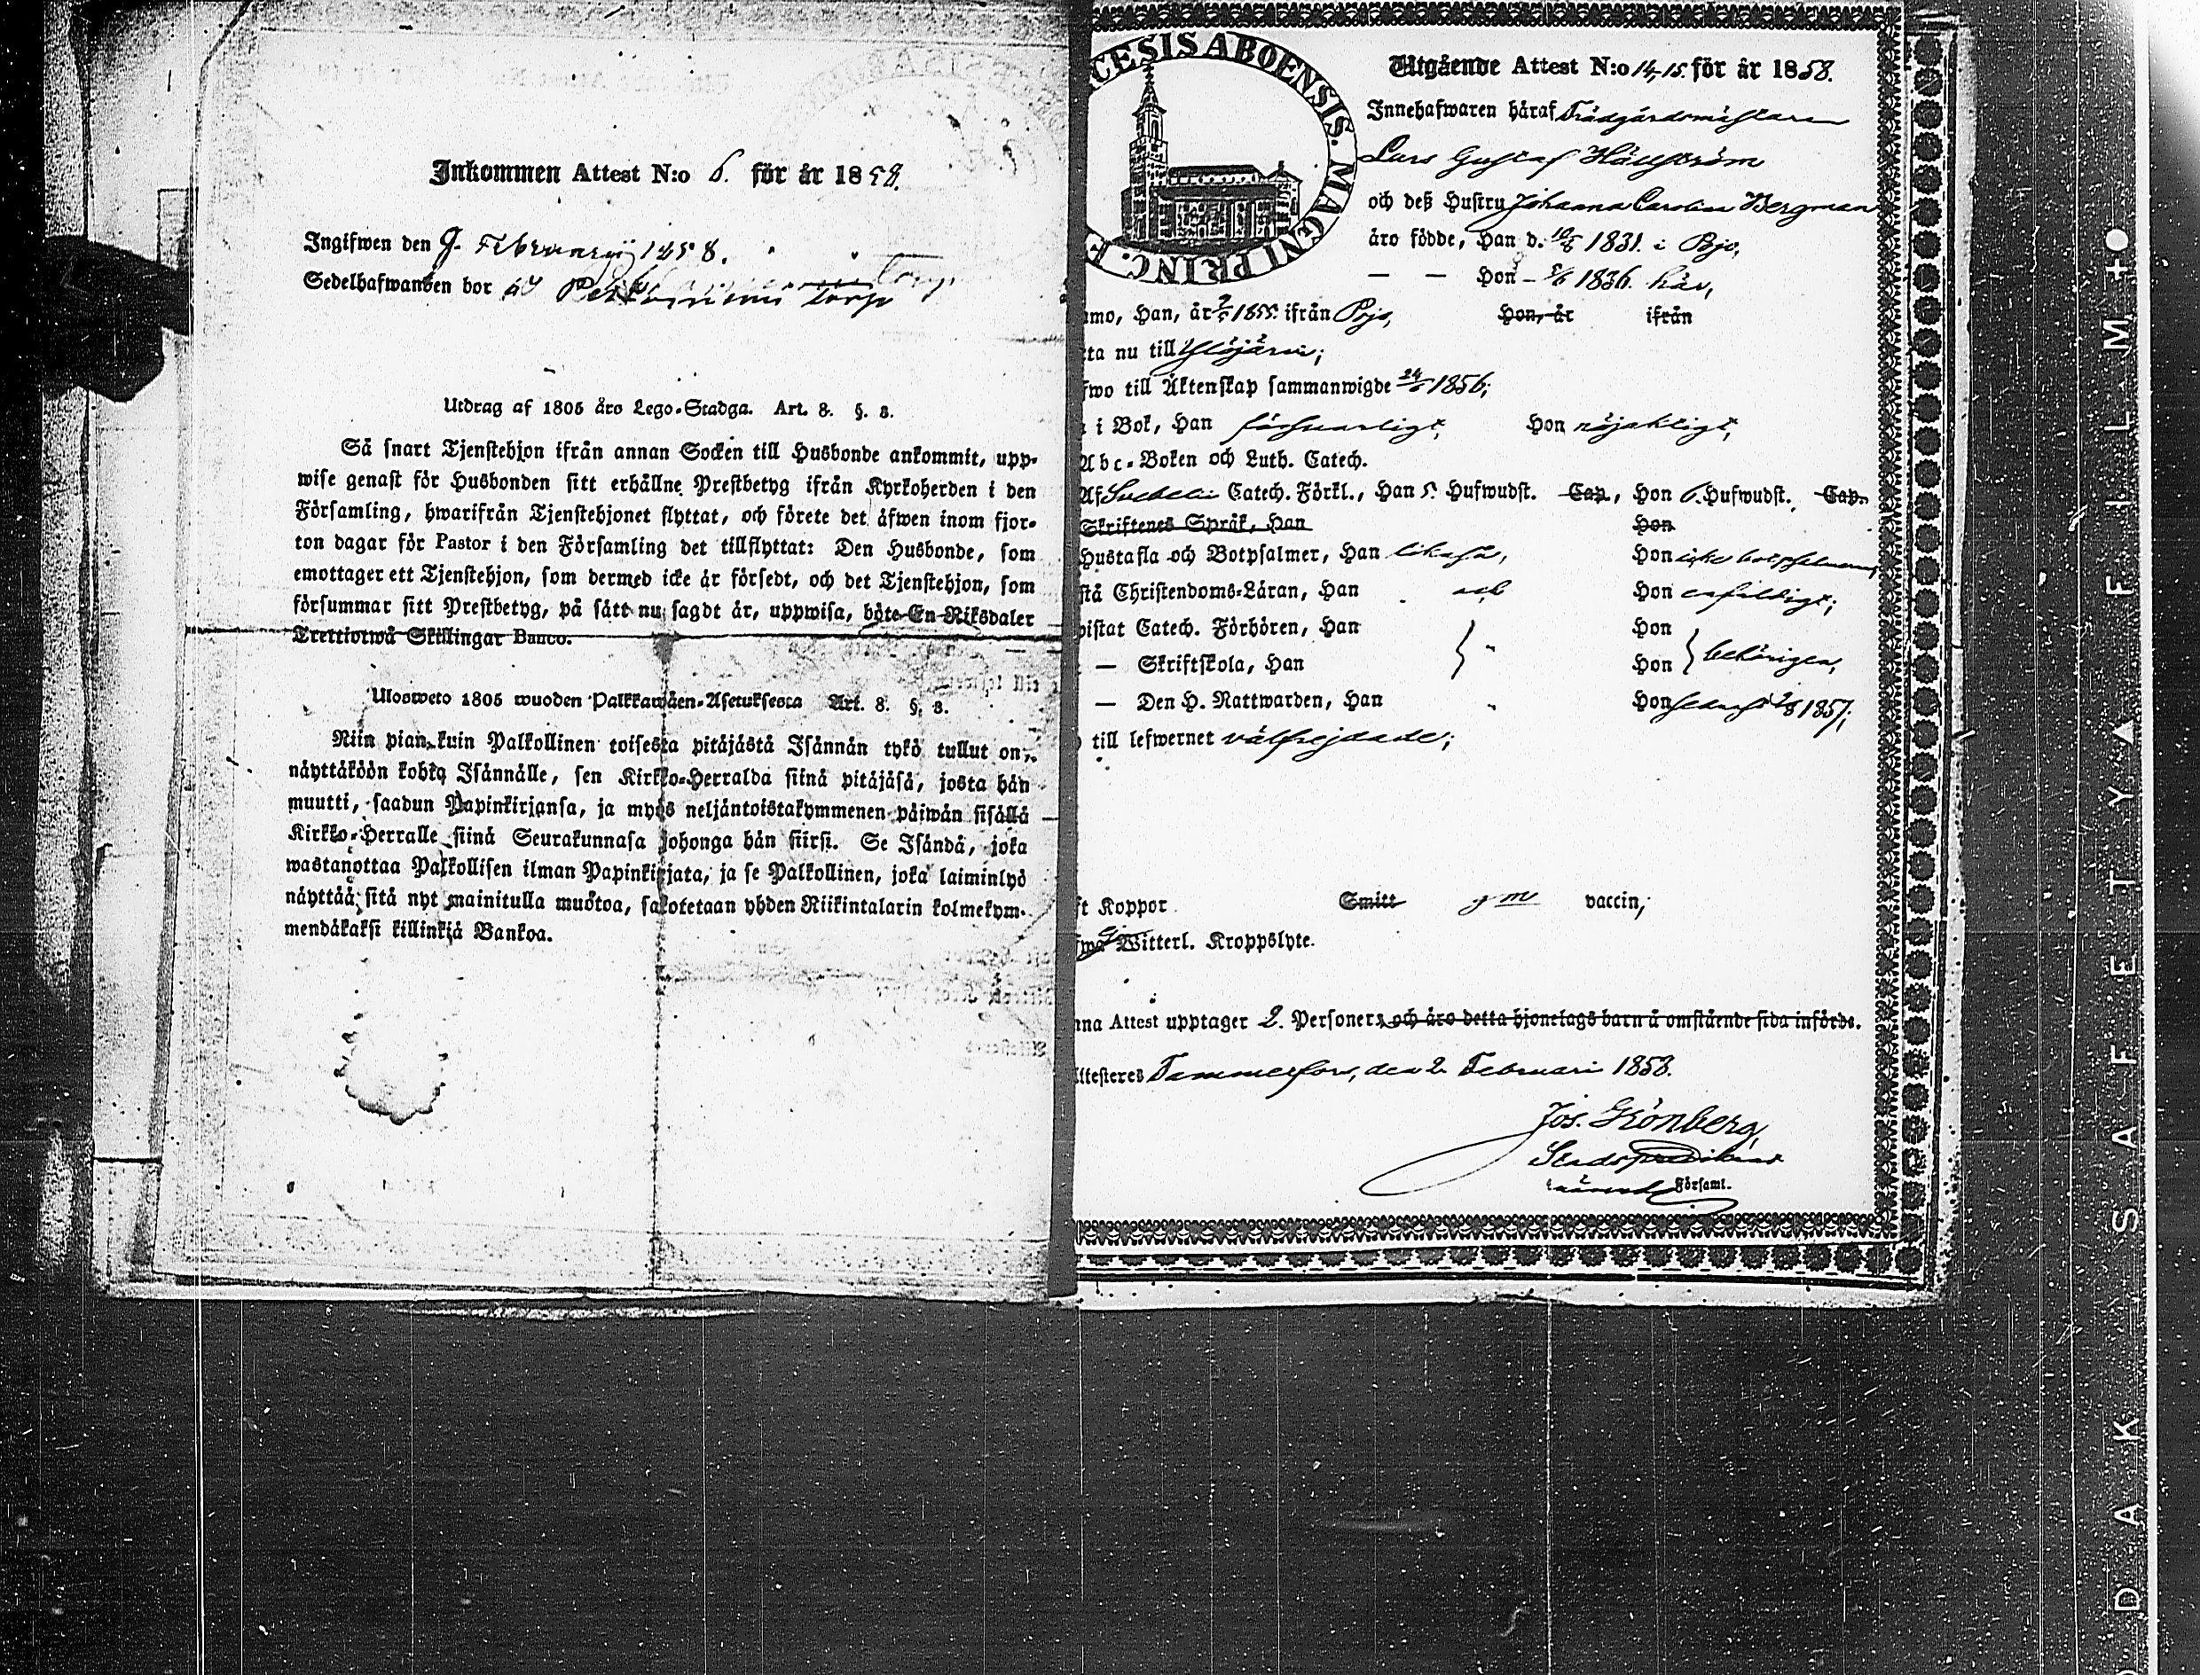 Inkommen Attest N:o 6. för år 1858.
Ingifwen den 9. Februarij 1858.
Sedelhafwanden bor på Torp
Utdrag af 1805 års Lego-Stadga. Art. 8. §. 8.
Så snart Tjenstehjon ifrån annan Socken till Husbonde ankommit, upp-
wise genast för Husbonden sitt erhållne Prestbetyg ifrån Kyrkoherden i den
Församling, hwarifrån Tjenstehjonet flyttat, och förete det äfwen inom fjor-
ton dagar för Pastor i den Församling det tillflyttat: Den Husbonde, som
emottager ett Tjenstehjon, som dermed icke är försedt, och det Tjenstehjon, som
försummar sitt Prestbetyg, på sätt nu sagdt är, uppwisa, böte En Riksdaler
Trettiotwå Skillingar Banco.
Ulosweto 1805 wuoden Palkkawäen-Asetuksesta Art. 8. §. 8.
Niin pian kuin Palkollinen toisesta pitäjästä Isännän tykö tullut on,
näyttäköön kohta Isännälle, sen Kirkko-Herralda siinä pitäjäsä, josta hän
muutti, saadun Papinkirjansa, ja myös neljäntoistakymmenen päiwän sisällä
Kirkko-Herralle siinä Seurakunnasa johonga hän siirsi. Se Isändä, joka
wastanottaa Palkollisen ilman Papinkirjata, ja se Palkollinen, joka laiminlyö
näyttää sitä nyt mainitulla muotoa, sakotetaan yhden Riikintalarin kolmekym-
mendäkaksi killinkiä Bankoa.
CESIS ABOENSIS. MAGNI PRINC. F
Utgående Attest N:o 14-15. för år 1858.
Innehafwaren häraf Trädgårdsmästaren
Lars Gustaf Hällström
och deß Hustru Johanna Carolina Bergman
äro födde, Han d. 10/8 1831. i Pojo,
— — Hon – 5/6 1836. här,
mo, Han, år 2/5 1855. ifrån Pojo, Hon, år ifrån
ta nu till Ylöjärvi;
fwo till Äktenskap sammanwigde 24/6 1856;
i Bok, Han försvarligt, Hon nöjaktigt,
Abc-Boken och Luth. Catech.
Af Svebelii Catech. Förkl., Han 5. Hufwudst. Cap., Hon 6. Hufwudst. Cap.
Skriftenes Språk, Han Hon
Hustafla och Botpsalmer, Han likaså, Hon icke botpsalmerna,
stå Christendoms-Läran, Han och Hon enfaldigt;
istat Catech. Förhören, Han Hon
— Skriftskola, Han Hon behörigen,
— Den H. Nattwarden, Han Hon senast 2/8 1857;
till lefwernet välfrejdade;
ft Koppor Smitt gm vaccin,
fwa Ej Witterl. Kroppslyte.
nna Attest upptager 2. Personer, och äro detta hjonelags barn å omstående sida införde.
ttesteres Tammerfors, den 2 Februari 1858.
Jos. Grönberg,
Stads
Församl.
D A K S A F E T Y ▲ F I L M